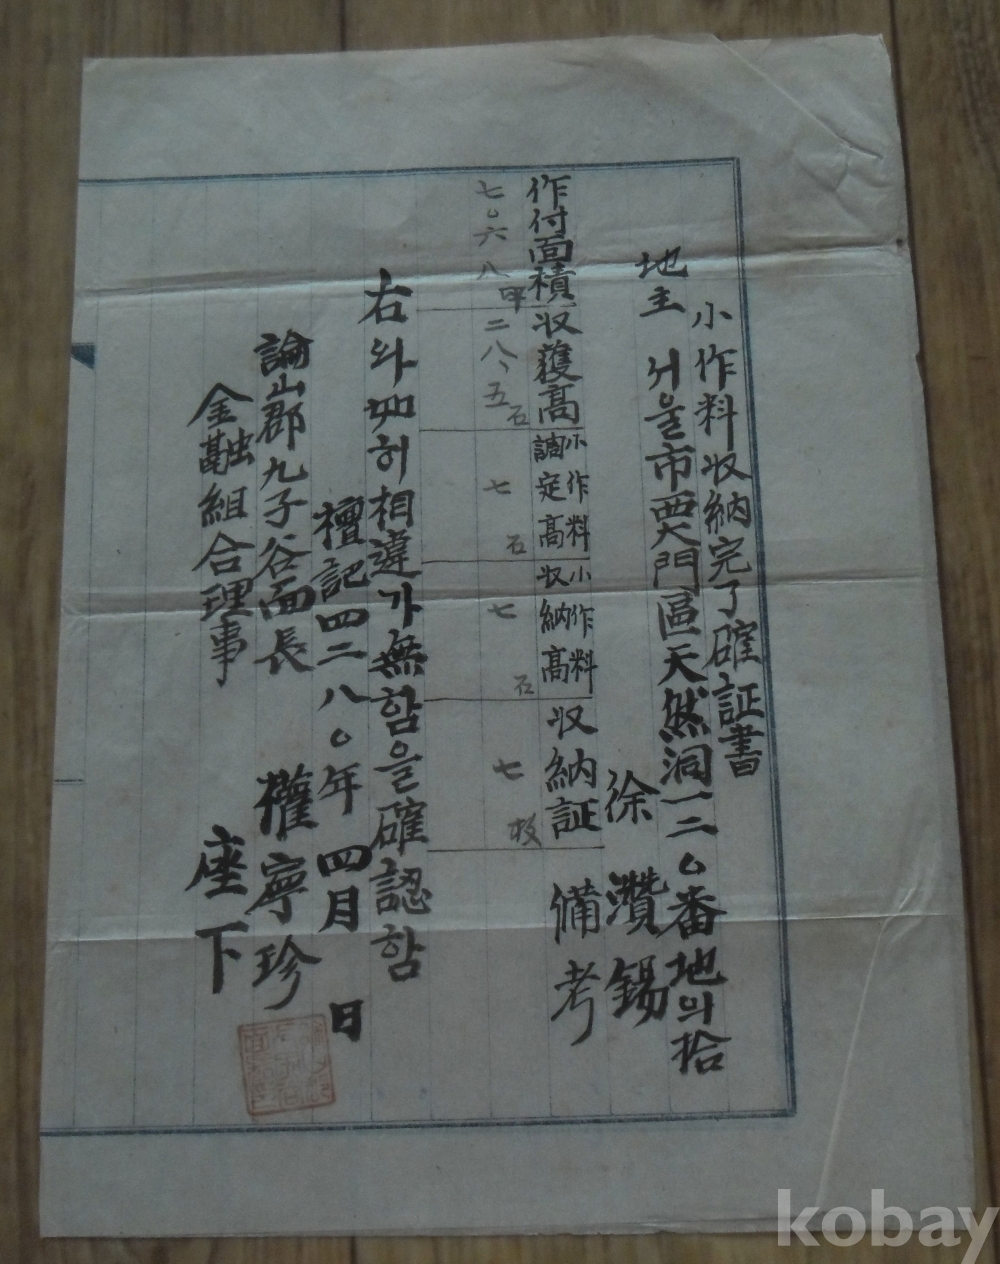 小作料収納完了確証書
地主 서울市西大門區天然洞一二○番地의拾
徐瓚錫
作付面積 収穫高 小作料調定高 小作料収納高 収納証 備考
七○六八坪 二八、五石 七石 七石 七枚
右와如히相違가無함을確認함
檀記四二八○年四月 日
論山郡九子谷面長 權寧珍
金融組合理事 座下
kobay